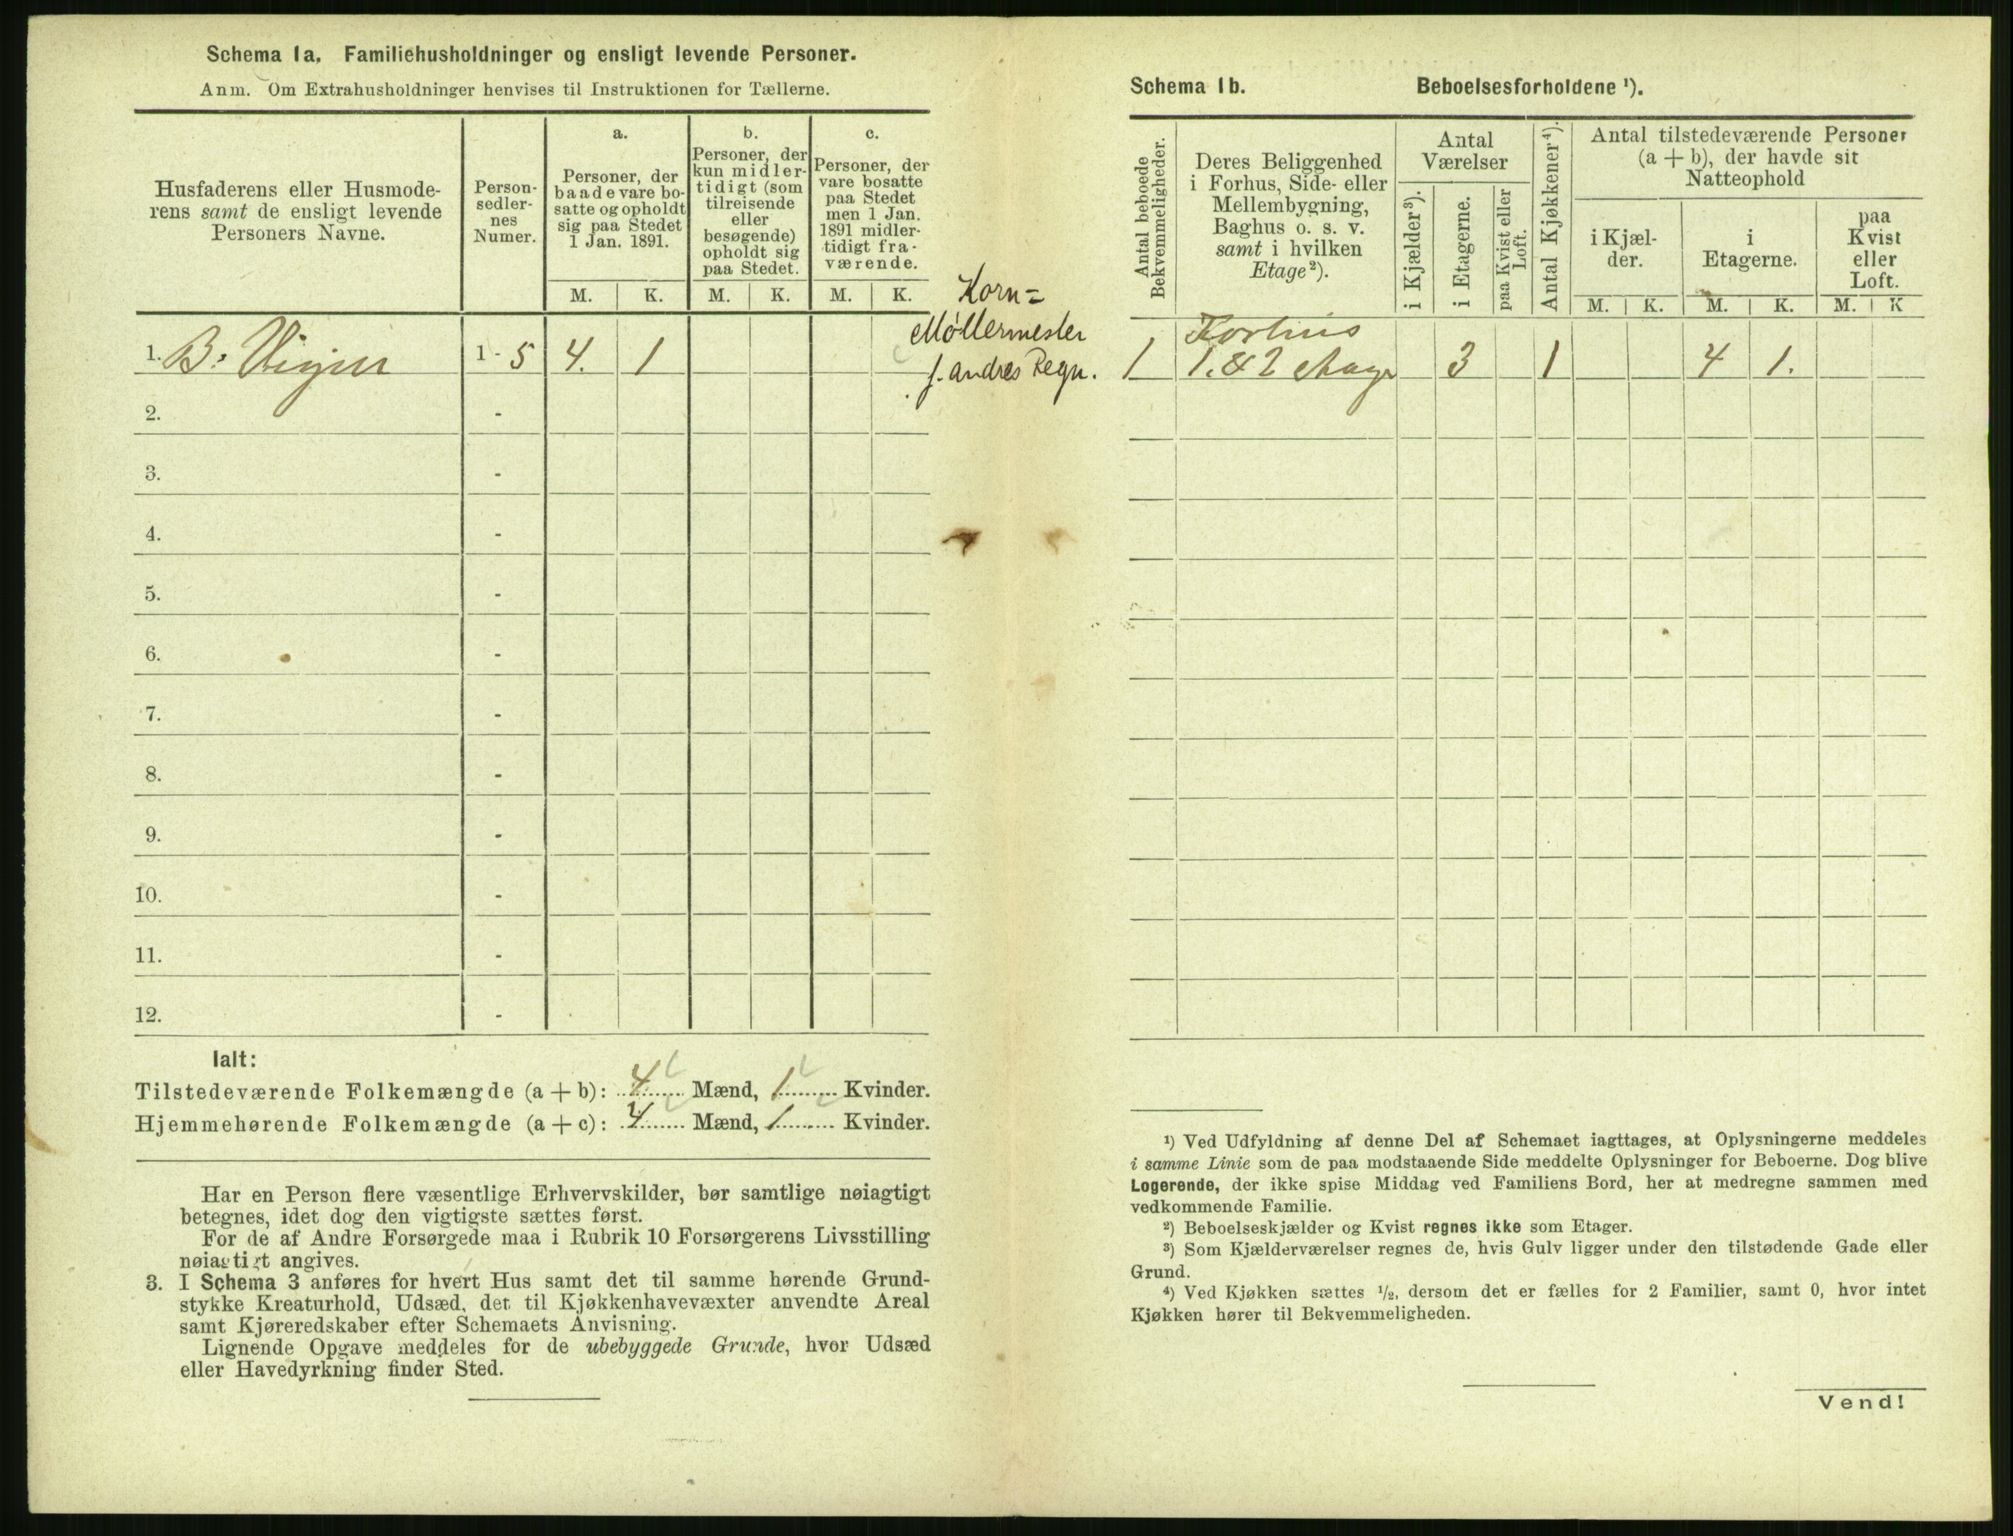 Schema 1a. Familiehusholdninger og ensligt levende Personer.
Anm. Om Extrahusholdninger henvises til Instruktionen for Tællerne.
Husfaderens eller Husmode-
rens samt de ensligt levende
Personers Navne.
Person-
sedler-
nes
Numer.
a.
Personer, der
baade vare bo-
satte og opholdt
sig paa Stedet
1 Jan. 1891.
M. K.
b.
Personer, der
kun midler-
tidigt (som
tilreisende
eller
besøgende)
opholdt sig
paa Stedet.
M. K.
c.
Personer, der
vare bosatte
paa Stedet
men 1 Jan.
1891 midler-
tidigt fra-
værende.
M. K.
1. B. 1 - 5 4. 1
2. -
3. -
4. -
5. -
6. -
7. -
8. -
9. -
10. -
11. -
12. -
Korn=
Møllermester
f. andres Regn.
Ialt:
Tilstedeværende Folkemængde (a + b): 4 Mænd, 1 Kvinder.
Hjemmehørende Folkemængde (a + c): 4 Mænd, 1 Kvinder.
Har en Person flere væsentlige Erhvervskilder, bør samtlige nøiagtigt
betegnes, idet dog den vigtigste sættes først.
For de af Andre Forsørgede maa i Rubrik 10 Forsørgerens Livsstilling
nøiagtigt angives.
3. I Schema 3 anføres for hvert Hus samt det til samme hørende Grund-
stykke Kreaturhold, Udsæd, det til Kjøkkenhavevæxter anvendte Areal
samt Kjøreredskaber efter Schemaets Anvisning.
Lignende Opgave meddeles for de ubebyggede Grunde, hvor Udsæd
eller Havedyrkning finder Sted.
Schema 1b. Beboelsesforholdene ¹).
Antal beboede
Bekvemmeligheder.
Deres Beliggenhed
i Forhus, Side- eller
Mellembygning,
Baghus o. s. v.
samt i hvilken
Etage²).
Antal
Værelser
i Kjælder³).
i Etagerne.
paa Kvist eller
Loft.
Antal Kjøkkener⁴).
Antal tilstedeværende Personer
(a + b), der havde sit
Natteophold
i Kjæl-
der.
M. K.
i
Etagerne.
M. K.
paa
Kvist
eller
Loft.
M. K
Forhus
1 1. & 2 3 1 4 1.
¹) Ved Udfyldning af denne Del af Schemaet iagttages, at Oplysningerne meddeles
i samme Linie som de paa modstaaende Side meddelte Oplysninger for Beboerne. Dog blive
Logerende, der ikke spise Middag ved Familiens Bord, her at medregne sammen med
vedkommende Familie.
²) Beboelseskjælder og Kvist regnes ikke som Etager.
³) Som Kjælderværelser regnes de, hvis Gulv ligger under den tilstødende Gade eller
Grund.
⁴) Ved Kjøkken sættes ½, dersom det er fælles for 2 Familier, samt 0, hvor intet
Kjøkken hører til Bekvemmeligheden.
Vend!